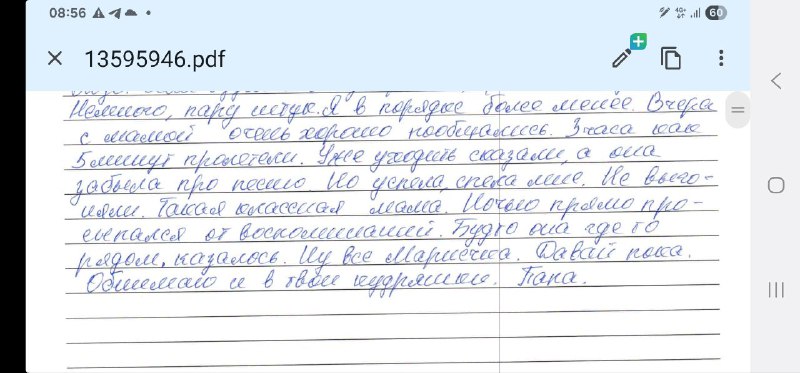 08:56
4G+
60
13595946.pdf
Немного, пару штук. Я в порядке более менее. Вчера
с мамой очень хорошо пообщались. 3 часа как
5 минут пролетели. Уже уходить сказали, а она
забыла про песню. Но успела, спела мне. Не выго-
няли. Такая классная мама. Ночью прямо про-
сыпался от воспоминаний. Будто она где то
рядом, казалось. Ну все Мариечка. Давай пока.
Обнимаю и в твои кудряшки. Папа.